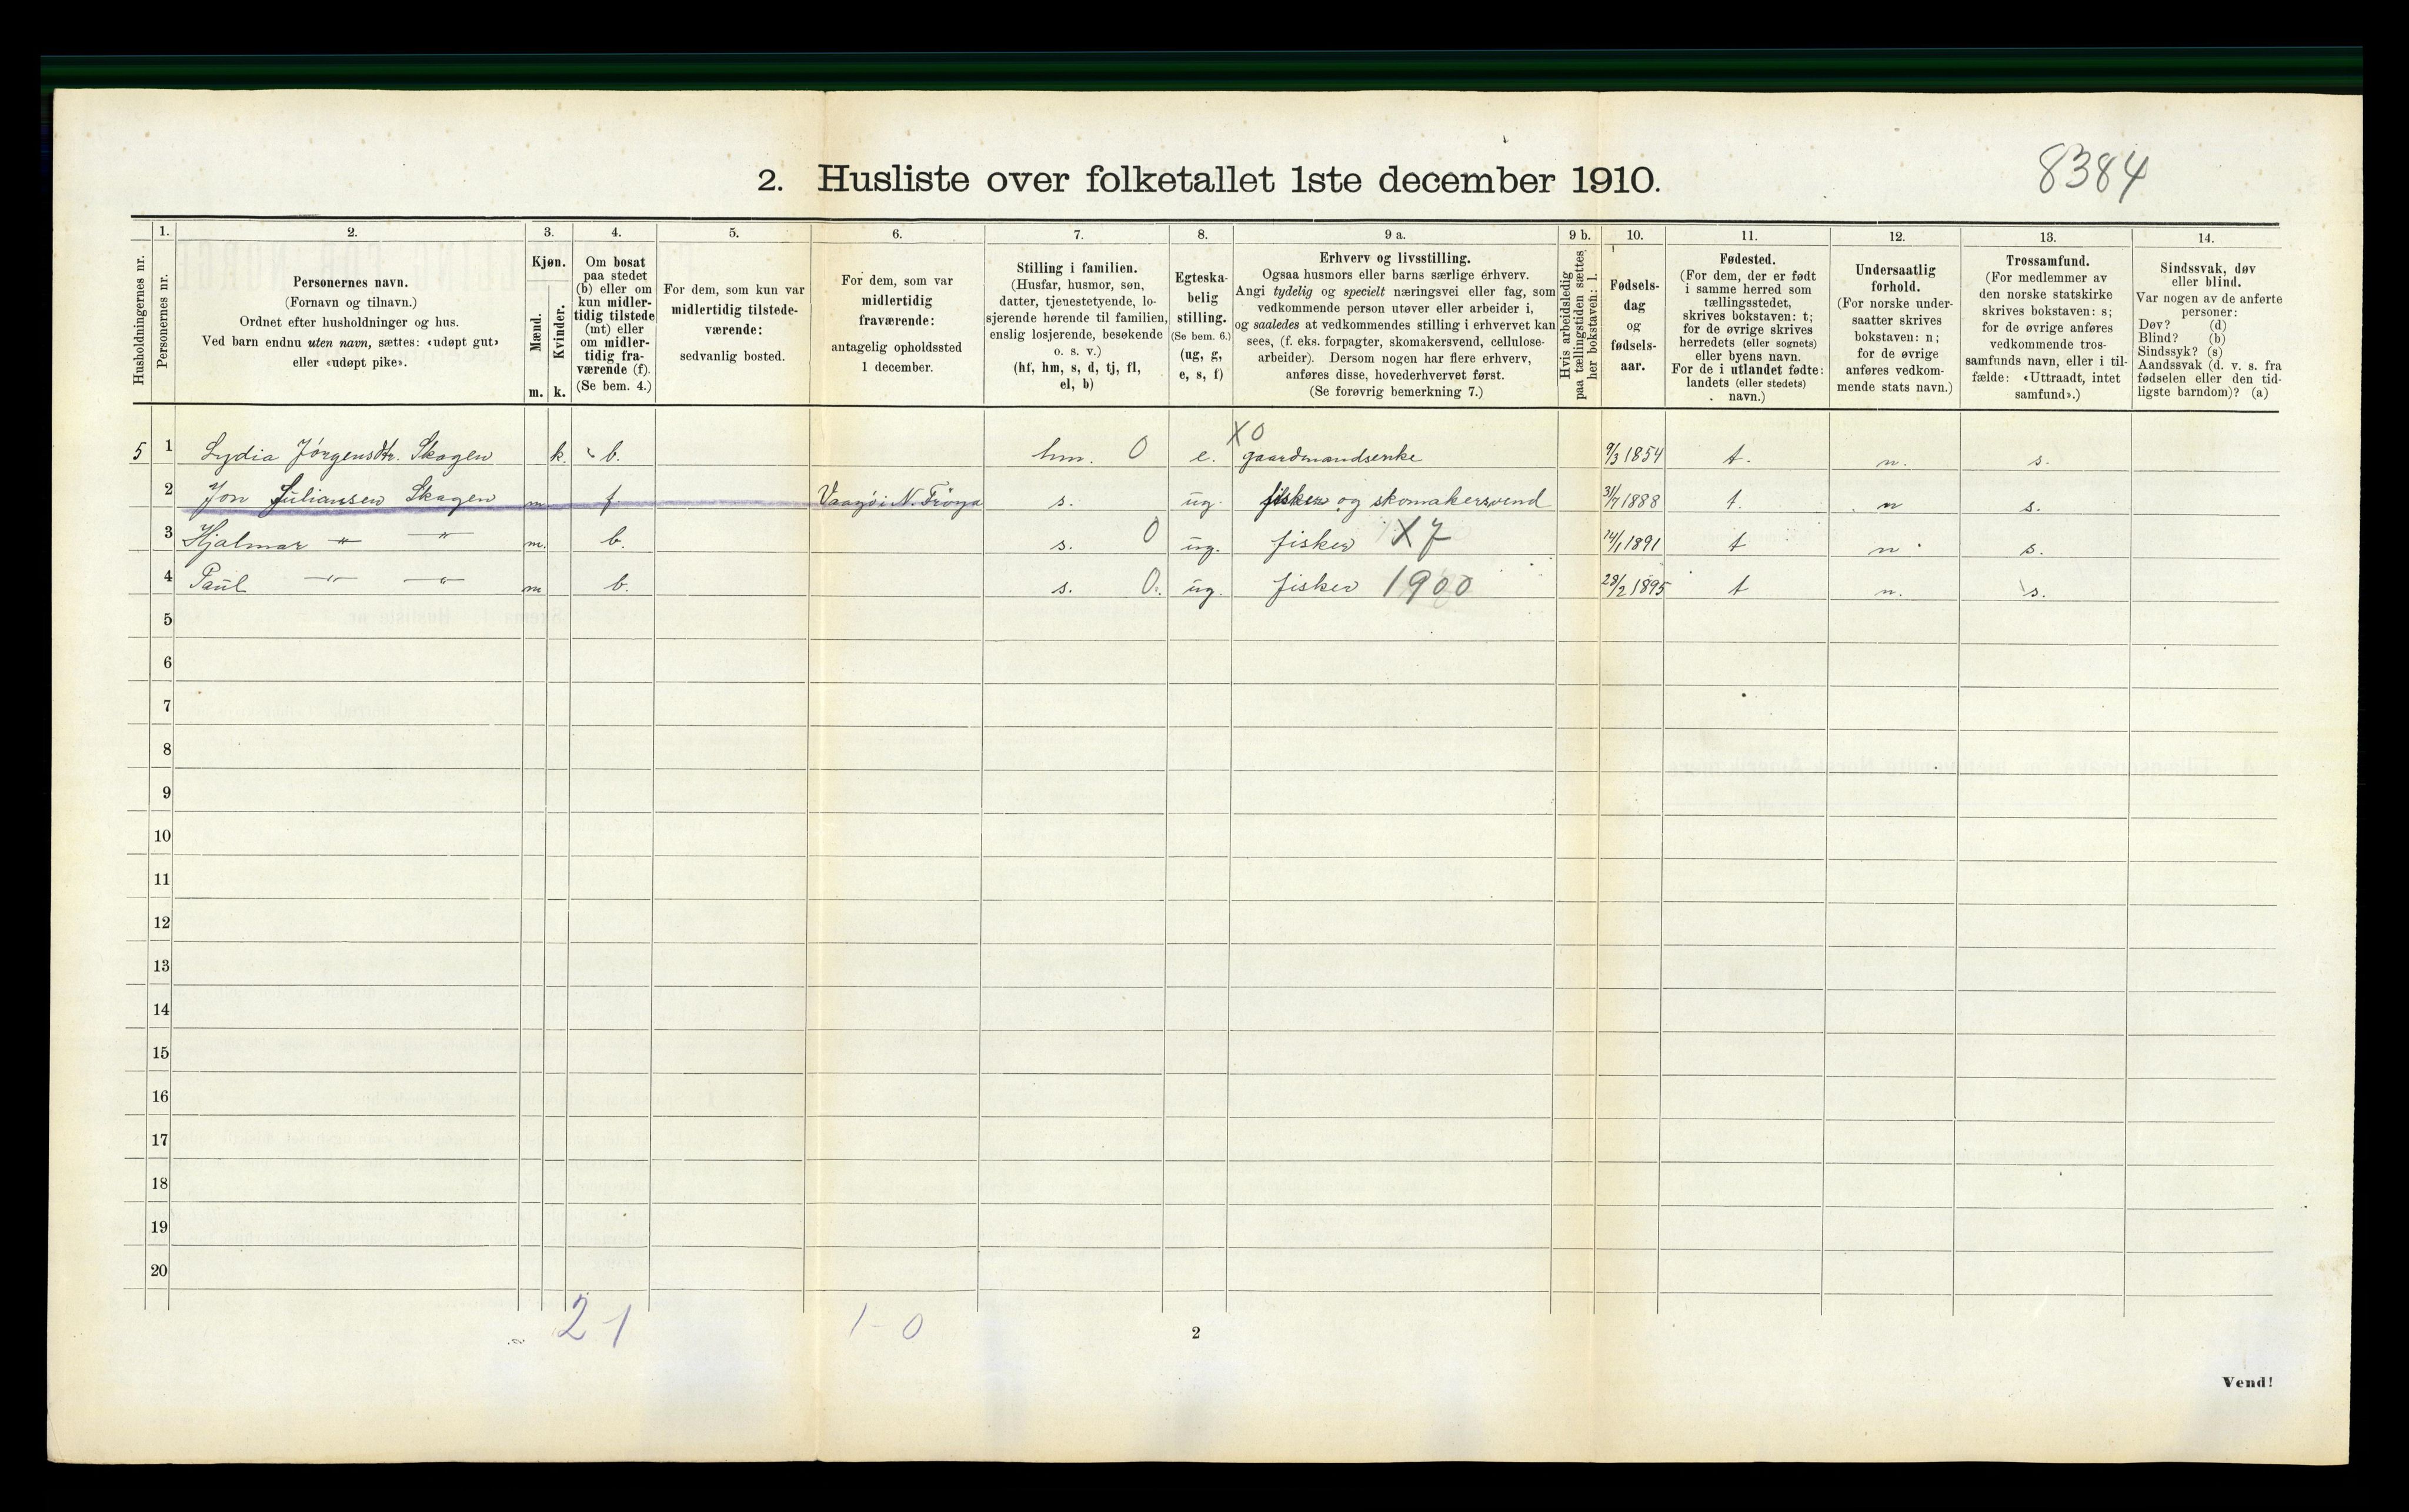 2. Husliste over folketallet 1ste december 1910.
8384
Husholdningernes nr.
1.
Personernes nr.
2.
Personernes navn.
(Fornavn og tilnavn.)
Ordnet efter husholdninger og hus.
Ved barn endnu uten navn, sættes: «udøpt gut»
eller «udøpt pike».
3.
Kjøn.
Mænd.
Kvinder.
m. k.
4.
Om bosat
paa stedet
(b) eller om
kun midler-
tidig tilstede
(mt) eller
om midler-
tidig fra-
værende (f).
(Se bem. 4.)
5.
For dem, som kun var
midlertidig tilstede-
værende:
sedvanlig bosted.
6.
For dem, som var
midlertidig
fraværende:
antagelig opholdssted
1 december.
7.
Stilling i familien.
(Husfar, husmor, søn,
datter, tjenestetyende, lo-
sjerende hørende til familien,
enslig losjerende, besøkende
o. s. v.)
(hf, hm, s, d, tj, fl,
el, b)
8.
Egteska-
belig
stilling.
(Se bem. 6.)
(ug, g,
e, s, f)
9 a.
Erhverv og livsstilling.
Ogsaa husmors eller barns særlige erhverv.
Angi tydelig og specielt næringsvei eller fag, som
vedkommende person utøver eller arbeider i,
og saaledes at vedkommendes stilling i erhvervet kan
sees, (f. eks. forpagter, skomakersvend, cellulose-
arbeider). Dersom nogen har flere erhverv,
anføres disse, hovederhvervet først.
(Se forøvrig bemerkning 7.)
9 b.
Hvis arbeidsledig
paa tællingstiden sættes
her bokstaven: l.
10.
Fødsels-
dag
og
fødsels-
aar.
11.
Fødested.
(For dem, der er født
i samme herred som
tællingsstedet,
skrives bokstaven: t;
for de øvrige skrives
herredets (eller sognets)
eller byens navn.
For de i utlandet fødte:
landets (eller stedets)
navn.)
12.
Undersaatlig
forhold.
(For norske under-
saatter skrives
bokstaven: n;
for de øvrige
anføres vedkom-
mende stats navn.)
13.
Trossamfund.
(For medlemmer av
den norske statskirke
skrives bokstaven: s;
for de øvrige anføres
vedkommende tros-
samfunds navn, eller i til-
fælde: «Uttraadt, intet
samfund».)
14.
Sindssvak, døv
eller blind.
Var nogen av de anførte
personer:
Døv? (d)
Blind? (b)
Sindssyk? (s)
Aandssvak (d. v. s. fra
fødselen eller den tid-
ligste barndom)? (a)
X0
5 1 Lydia Jörgensdtr. Skagen k. b. hm. 0 e. gaardmandsenke 9/3 1854 t. n. s.
2 Jon Juliansen Skagen m f Vaagöi N. Fröya s. ug. fisker og skomakersvend 31/7 1888 t. n s.
3 Hjalmar —"— —"— m. b. s. 0 ug. fisker X7 14/1 1891 t n s.
4 Paul —"— —"— m b. s. 0. ug. fisker 1900 28/2 1895 t n. s.
5
6
7
8
9
10
11
12
13
14
15
16
17
18
19
20
2 1 1 - 0
2
Vend!